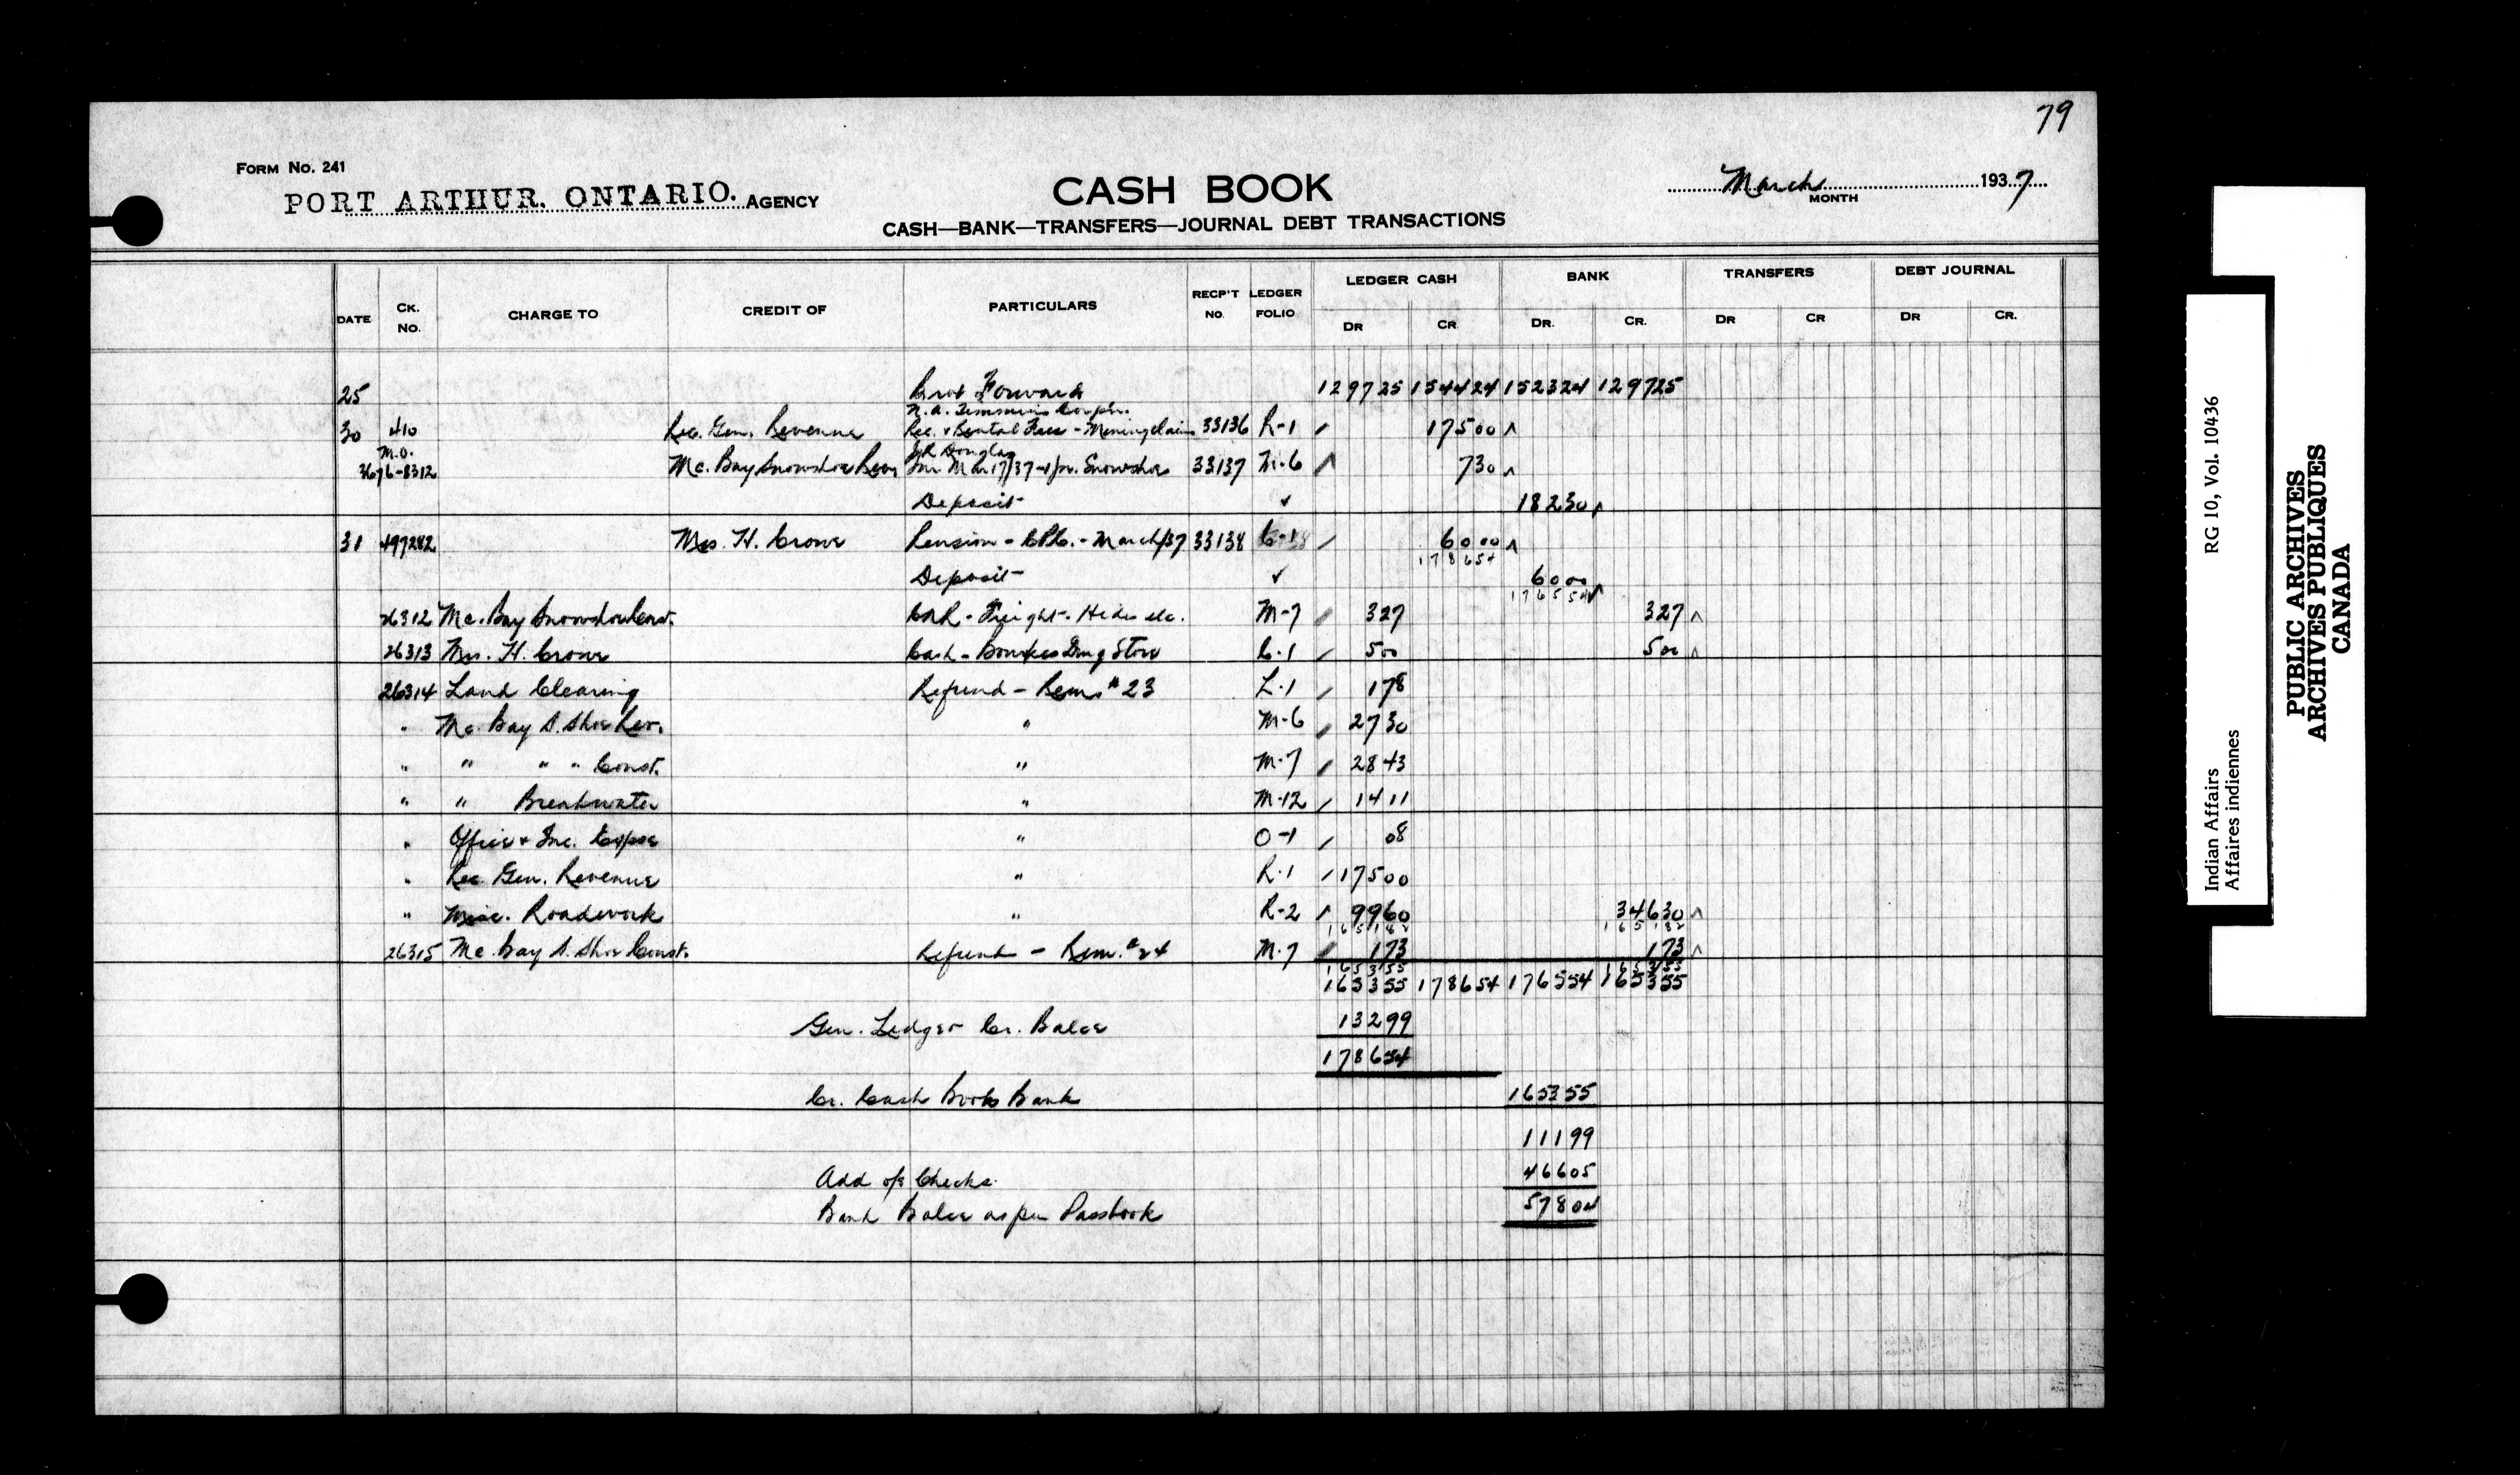 79
FORM NO. 241
PORT ARTHUR, ONTARIO. AGENCY
CASH BOOK
March 1937
MONTH
CASH—BANK—TRANSFERS—JOURNAL DEBT TRANSACTIONS
LEDGER CASH BANK TRANSFERS DEBT JOURNAL
DATE CK. NO. CHARGE TO CREDIT OF PARTICULARS RECP'T NO. LEDGER FOLIO DR CR DR. CR. DR CR DR CR.
25 Brot Forward 129725 154424 152324 129725
N. A. Timmins Corp'n.
30 410 Rec. Gen. Revenue Rec. & Rental Fees - Mining Claim 33136 R-1 17500
M.O. J.R. Douglas
3676-8312 Mc. Bay Snowshoe Rev. Inv. Mar 17/37-1 pr. Snowshoe 33137 M-6 730
Deposit ✓ 18230
31 497282 Mrs. H. Crowe Pension - C.P.C. - March/37 33138 C-1 6000
178654
Deposit ✓ 6000
176554
26312 Mc. Bay Snowshoe Const. CNR - Freight - Hides etc. M-7 327 327
26313 Mrs. H. Crowe Cash - Bourkes Drug Store C-1 500 500
26314 Land Clearing Refund - Rem # 23 L-1 178
" Mc. Bay S. Shoe Rev. " M-6 2730
" " " " Const. " M-7 2843
" " Breakwater " M-12 1411
" Office & Inc. Expse " O-1 08
" Rec. Gen. Revenue " R-1 17500
" Misc. Roadwork " R-2 9960 34630
165182 165182
26315 Mc. Bay S. Shoe Const. Refund - Rem. # 24 M-7 173 173
165355 165355
165355 178654 176554 165355
Gen. Ledger Cr. Balce 13299
178654
Cr. Cash Book Bank 165355
11199
Add o/s Checks. 46605
Bank Balce as per Passbook 57804
Indian Affairs RG 10, Vol. 10436
Affaires indiennes
PUBLIC ARCHIVES
ARCHIVES PUBLIQUES
CANADA